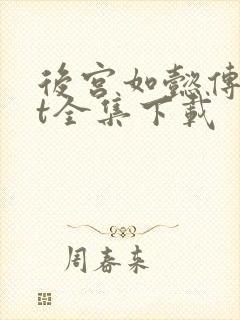 後宫如懿傳
t全集下載
周春来